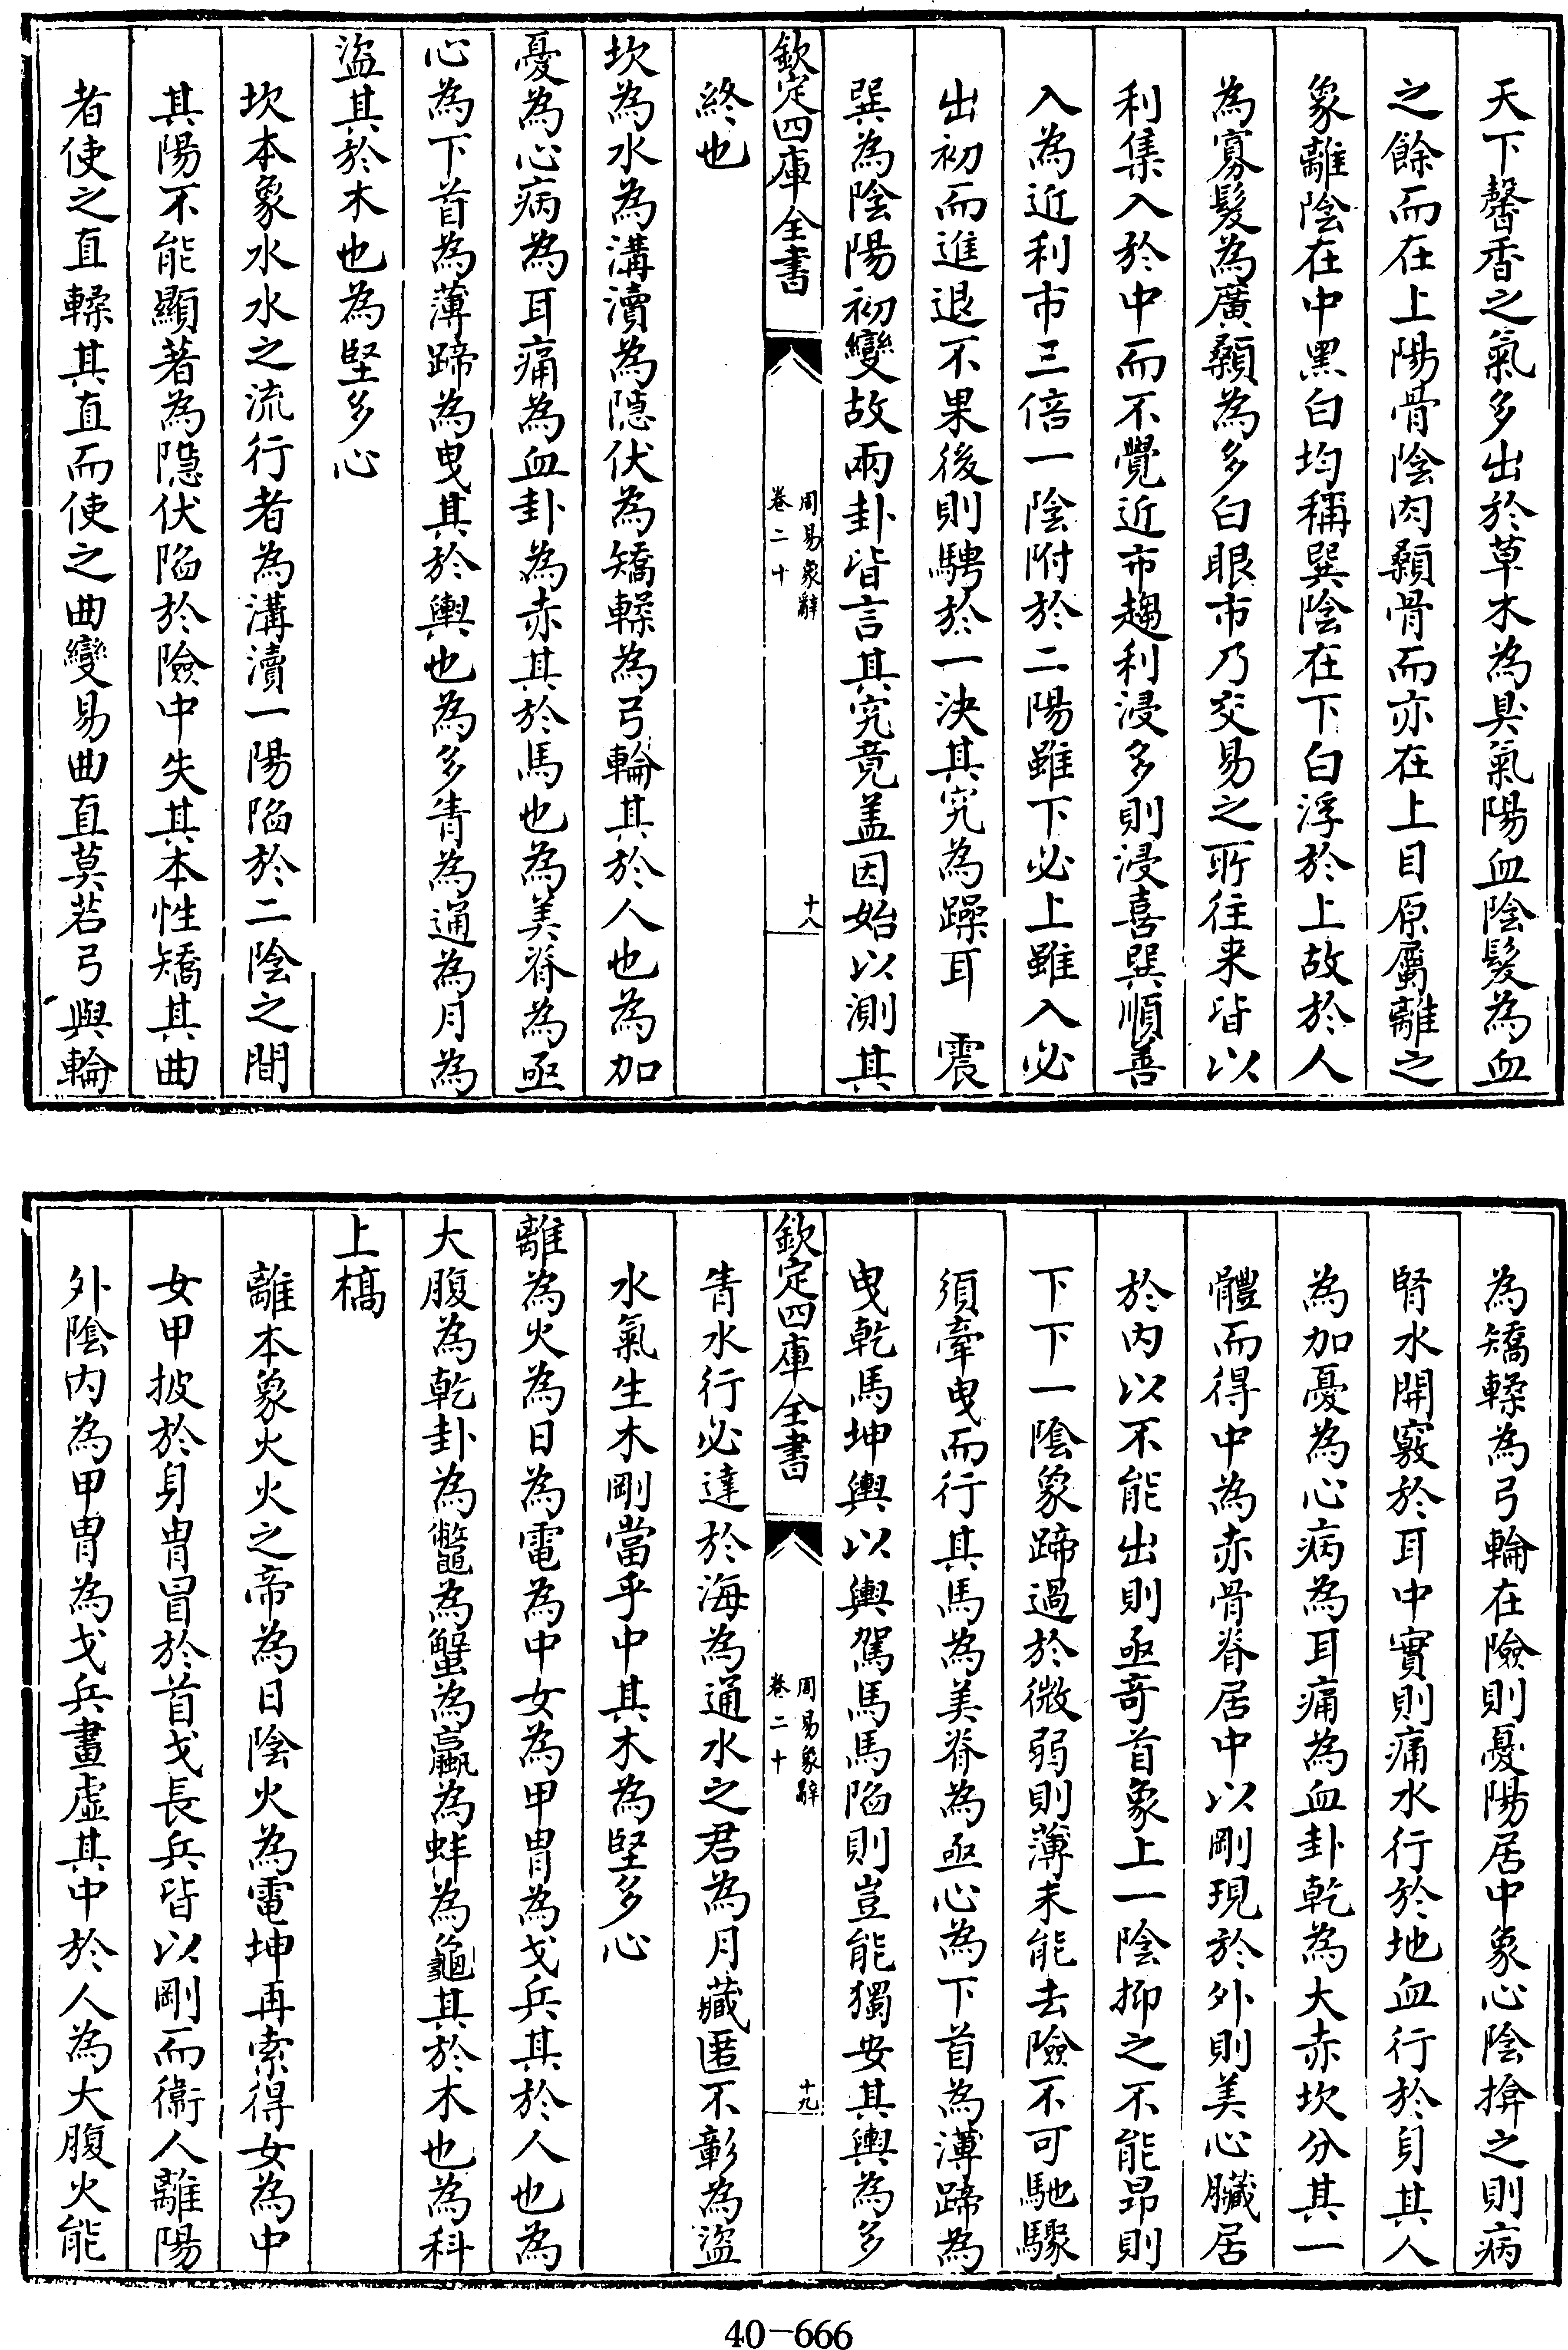 天下馨香之氣多出於草木為臭氣陽血陰髮為血
之餘而在上陽骨陰肉顙骨而亦在上目原屬離之
象離陰在中黑白均稱巽陰在下白浮於上故於人
為寡髮為廣顙為多白眼市乃交易之所往来皆以
利集入於中而不覺近市趨利浸多則浸喜巽順善
入為近利市三倍一陰附於二陽雖下必上雖入必
出初而進退不果後則騁於一決其究為躁耳　震
巽為陰陽初變故兩卦皆言其究竟盖因始以測其
欽定四庫全書
周易象辭
卷二十
十八
終也
坎為水為溝瀆為隠伏為矯輮為弓輪其於人也為加
憂為心病為耳痛為血卦為赤其於馬也為美脊為亟
心為下首為薄蹄為曳其於輿也為多眚為通為月為
盜其於木也為堅多心
坎本象水水之流行者為溝瀆一陽陷於二陰之間
其陽不能顯著為隠伏陷於險中失其本性矯其曲
者使之直輮其直而使之曲變易曲直莫若弓與輪
為矯輮為弓輪在險則憂陽居中象心陰揜之則病
腎水開竅於耳中實則痛水行於地血行於身其人
為加憂為心病為耳痛為血卦乾為大赤坎分其一
體而得中為赤骨脊居中以剛現於外則美心臟居
於内以不能出則亟奇首象上一陰抑之不能昂則
下下下一陰象蹄過於微弱則薄未能去險不可馳驟
須牽曳而行其馬為美脊為亟心為下首為薄蹄為
曳乾馬坤輿以輿駕馬馬陷則豈能獨安其輿為多
欽定四庫全書
周易象辭
卷二十
十九
眚水行必達於海為通水之君為月藏匿不彰為盜
水氣生木剛當乎中其木為堅多心
離為火為日為電為中女為甲胄為戈兵其於人也為
大腹為乾卦為鼈為蟹為蠃為蚌為龜其於木也為科
上槁
離本象火火之帝為日陰火為電坤再索得女為中
女甲披於身胄冒於首戈長兵皆以剛而衞人離陽
外陰内為甲胄為戈兵畫虛其中於人為大腹火能
40-666